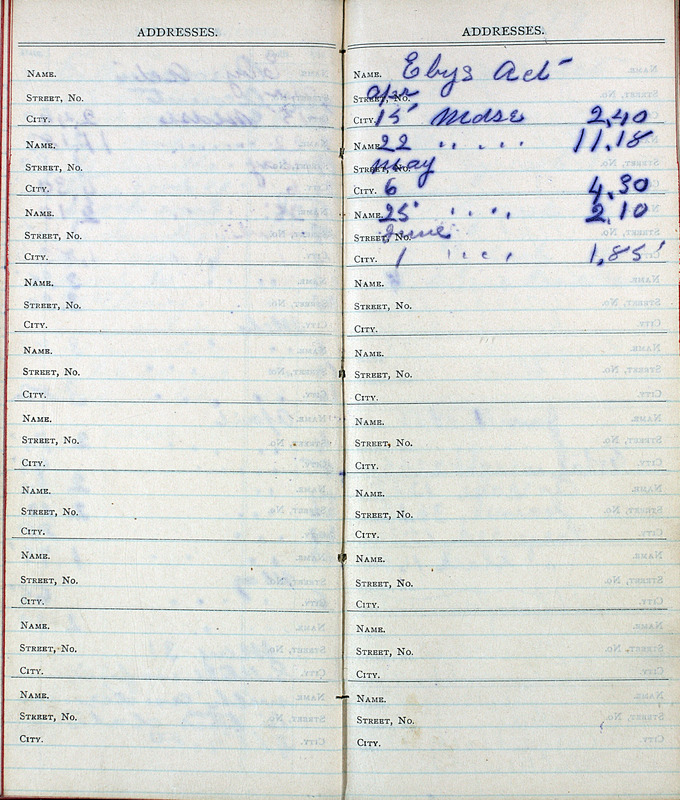 ADDRESSES.
NAME.
STREET, NO.
CITY.
NAME.
STREET, NO.
CITY.
NAME.
STREET, NO.
CITY.
NAME.
STREET, NO.
CITY.
NAME.
STREET, NO.
CITY.
NAME.
STREET, NO.
CITY.
NAME.
STREET, NO.
CITY.
NAME.
STREET, NO.
CITY.
NAME.
STREET, NO.
CITY.
NAME.
STREET, NO.
CITY.
ADDRESSES.
NAME. Ebys Act
STREET, NO. Apr
CITY. 15 Mdse 2,40
NAME. 22 " " 11.18
STREET, NO. May
CITY. 6 4.30
NAME. 25 " " 2.10
STREET, NO. June
CITY. 1 " " 1,85
NAME.
STREET, NO.
CITY.
NAME.
STREET, NO.
CITY.
NAME.
STREET, NO.
CITY.
NAME.
STREET, NO.
CITY.
NAME.
STREET, NO.
CITY.
NAME.
STREET, NO.
CITY.
NAME.
STREET, NO.
CITY.